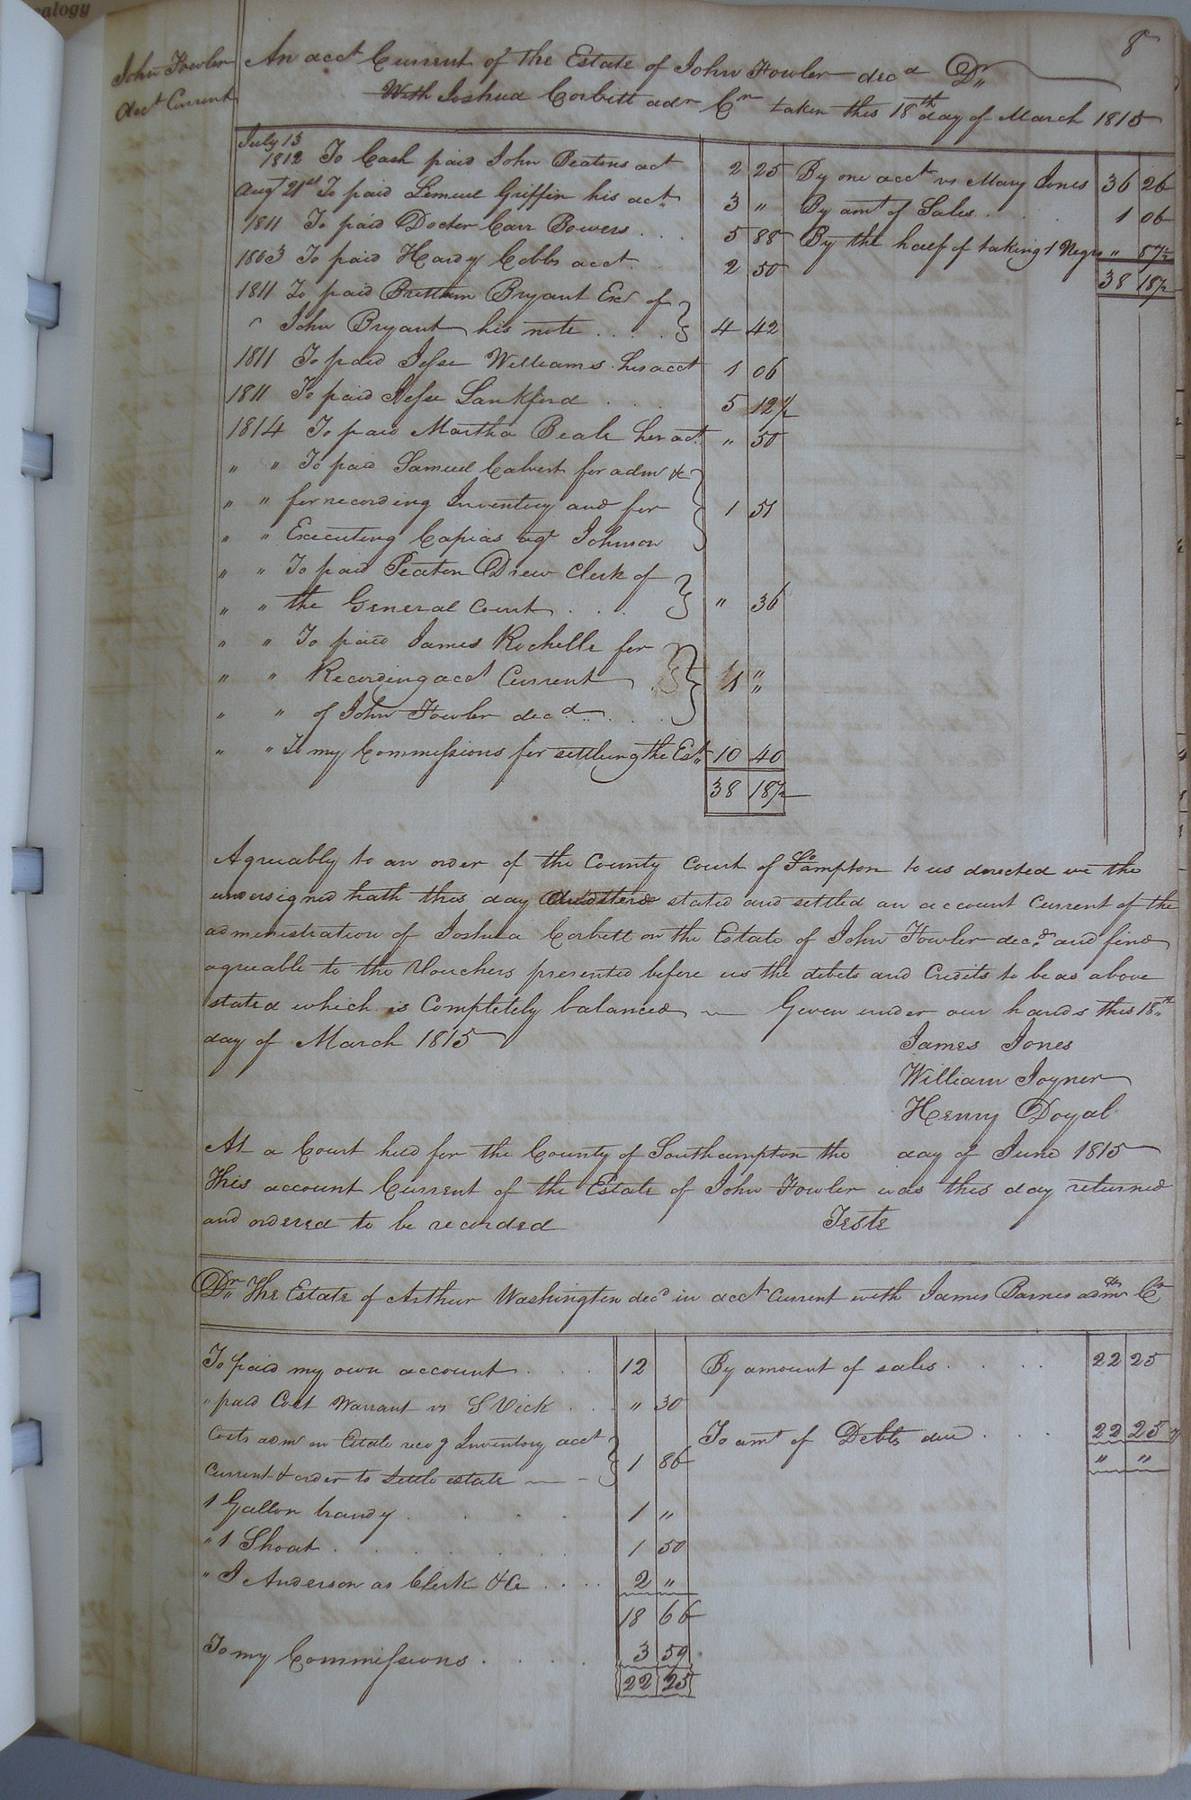 ealogy
8
John Fowler
Acct Current
An acct Current of the Estate of John Fowler decd Dr
With Joshua Corbett adr Cr taken this 18th day of March 1815
July 13
1812 To Cash paid John Beatons act 2 25
By one acct vs Mary Jones 36 26
Augt 21st To paid Lemuel Griffin his act 3 "
By amt of Sales . . . 1 06
1811 To paid Docter Carr Bowers . . . 5 88
By the half of taking 1 Negro " 87½
1803 To paid Hardy Cobbs acct 2 50
38 18½
1811 To paid Brittain Bryant Exr of
" John Bryant his note . . . . 4 42
1811 To paid Jesse Williams his acct 1 06
1811 To paid Jesse Lankford . . . 5 12½
1814 To paid Martha Beale her act " 50
" " To paid Samuel Calvert for adm &c
" " for recording Inventory and for 1 51
" " Executing Capias agt Johnson
" " To paid Peaton Drew Clerk of
" " the General Court . . . " 36
" " To paid James Rochelle for
" " Recording acct Current 1 "
" " of John Fowler decd . . .
" " To my Commissions for settling the Est. 10 40
38 18½
Agreeably to an order of the County Court of So.ampton to us directed we the
undersigned hath this day stated and settled an account Current of the
administration of Joshua Corbett on the Estate of John Fowler decd and find
agreeable to the Vouchers presented before us the debits and Credits to be as above
stated which is Completely balanced — Given under our hands this 18th
day of March 1815
James Jones
William Joyner
Henry Doyal
At a Court held for the County of Southampton the day of June 1815
This account Current of the Estate of John Fowler was this day returned
and ordered to be recorded Teste
Dr The Estate of Arthur Washington decd in acct Current with James Barnes admr Cr
To paid my own account . . . 12
By amount of sales . . . . 22 25
" paid Cost Warrant vs S Vick . . . " 30
Costs adm on Estate recog Inventory acct
To amt of Debts due . . . . 22 25
Current & order to settle estate 1 86
" "
1 Gallon brandy . . . . . 1 "
" 1 Shoat . . . . . . 1 50
" J Anderson as Clerk &c . . . . 2 "
18 66
To my Commissions . . . . 3 59
22 25